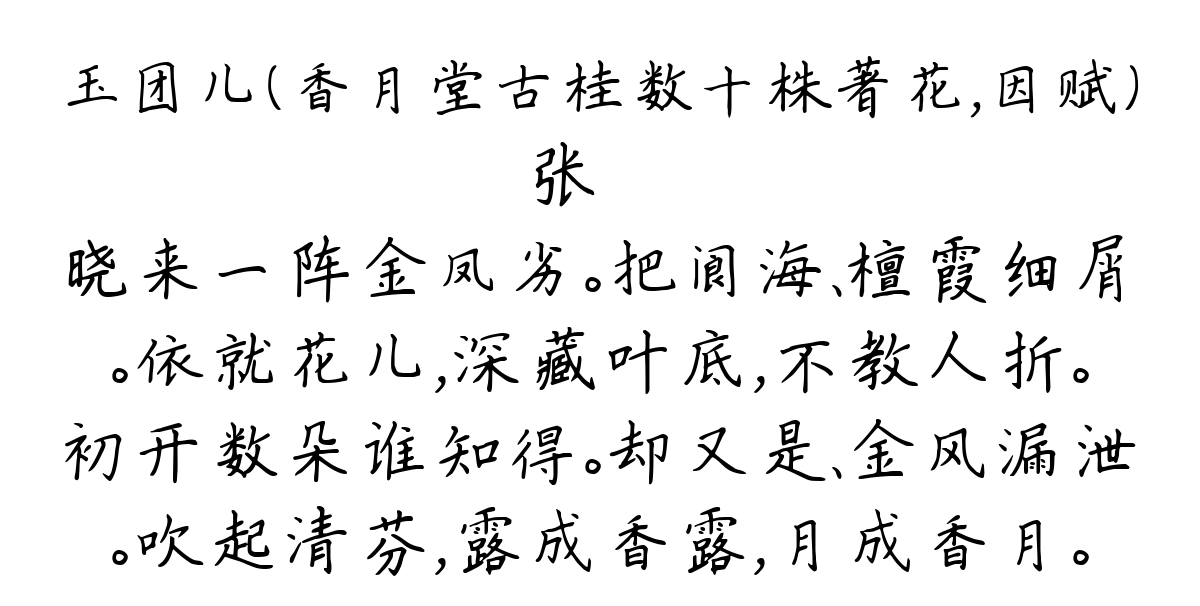 玉团儿(香月堂古桂数十株著花,因赋)
张
晓来一阵金凤劣。把阆海、檀霞细屑
。依就花儿,深藏叶底,不教人折。
初开数朵谁知得。却又是、金风漏泄
。吹起清芬,露成香露,月成香月。